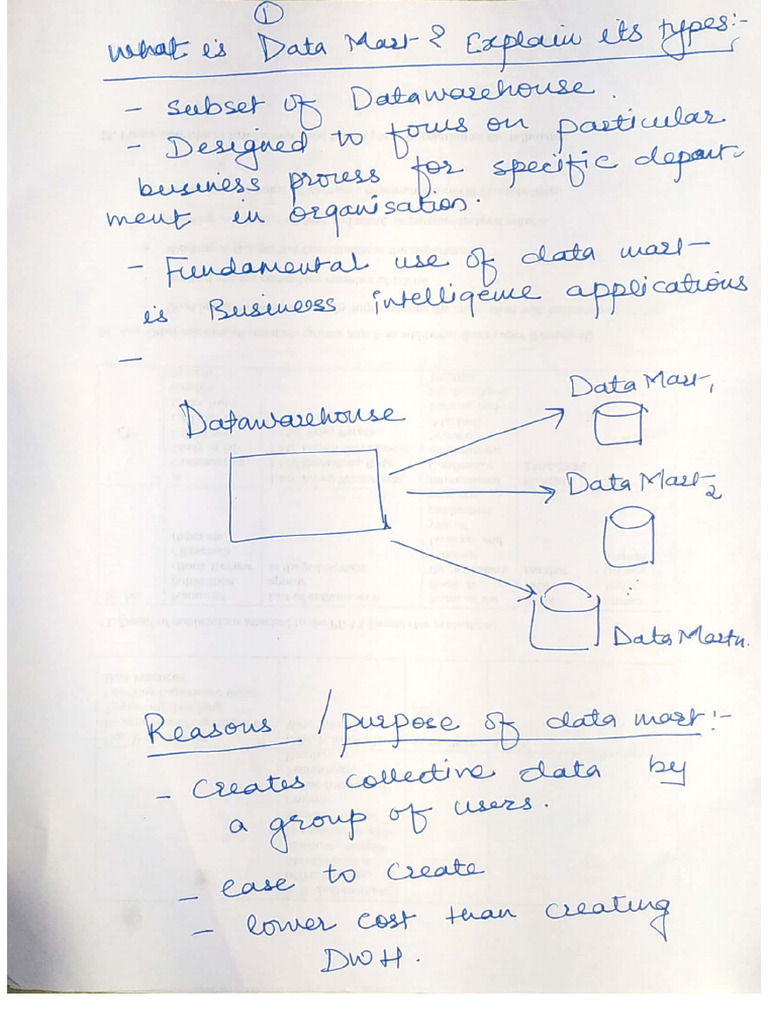 ①
What is Data Mart? Explain its types:-
- Subset of Datawarehouse.
- Designed to focus on particular
business process for specific depart-
ment in organisation.
- Fundamental use of data mart
is Business intelligence applications
-
Data Mart1
Datawarehouse
Data Mart2
Data Martn.
Reasons / purpose of data mart:-
- Creates collective data by
a group of users.
- ease to create
- lower cost than creating
DWH.